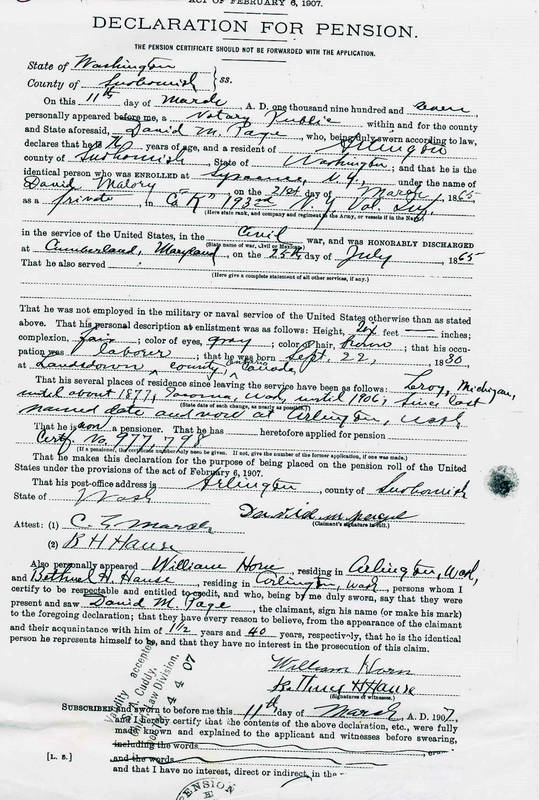 ACT OF FEBRUARY 6, 1907.
DECLARATION FOR PENSION.
THE PENSION CERTIFICATE SHOULD NOT BE FORWARDED WITH THE APPLICATION.
State of Washington
County of Snohomish } ss.
On this 11th day of March, A. D. one thousand nine hundred and seven
personally appeared before me, a Notary Public within and for the county
and State aforesaid, David M. Page, who, being duly sworn according to law,
declares that he is years of age, and a resident of Arlington
county of Snohomish, State of Washington; and that he is the
identical person who was ENROLLED at Syracuse, N.Y., under the name of
David Malory, on the 21st day of March, 1865
as a private, in Co "K" 193rd N.Y. Vol. Inf.,
(Here state rank, and company and regiment in the Army, or vessels if in the Navy.)
in the service of the United States, in the Civil war, and was HONORABLY DISCHARGED
(State name of war, Civil or Mexican.)
at Cumberland, Maryland, on the 25th day of July, 1865
That he also served
(Here give a complete statement of all other services, if any.)
That he was not employed in the military or naval service of the United States otherwise than as stated
above. That his personal description at enlistment was as follows: Height, six feet — inches;
complexion, fair; color of eyes, gray; color of hair, brown; that his occu-
pation was laborer; that he was born Sept. 22, 1830,
at Lansdown county, Canada,
That his several places of residence since leaving the service have been as follows: Leroy, Michigan,
until about 1877, Tacoma, Wash, until 1906, since last
(State date of each change, as nearly as possible.)
named date and now at Arlington, Wash
That he is now a pensioner. That he has heretofore applied for pension
Certf. No. 977,798
(If a pensioner, the certificate number only need be given. If not, give the number of the former application, if one was made.)
That he makes this declaration for the purpose of being placed on the pension roll of the United
States under the provisions of the act of February 6, 1907.
That his post-office address is Arlington, county of Snohomish
State of Wash
David M
(Claimant's signature in full.)
Attest: (1) C. E. Marsh
(2) B H Hause
Also personally appeared William Horn, residing in Arlington, Wash,
and Bethuel H. Hause, residing in Arlington, Wash, persons whom I
certify to be respectable and entitled to credit, and who, being by me duly sworn, say that they were
present and saw David M. Page, the claimant, sign his name (or make his mark)
to the foregoing declaration; that they have every reason to believe, from the appearance of the claimant
and their acquaintance with him of 1 1/2 years and 40 years, respectively, that he is the identical
person he represents himself to be, and that they have no interest in the prosecution of this claim.
William Horn
Bethuel H Hause
(Signatures of witnesses.)
SUBSCRIBED and sworn to before me this 11th day of March, A. D. 1907,
and I hereby certify that the contents of the above declaration, etc., were fully
made known and explained to the applicant and witnesses before swearing,
including the words
[L. S.] and the words
and that I have no interest, direct or indirect, in the
Validity accepted
Cuddy,
Law Division,
4 4 07
PENSION